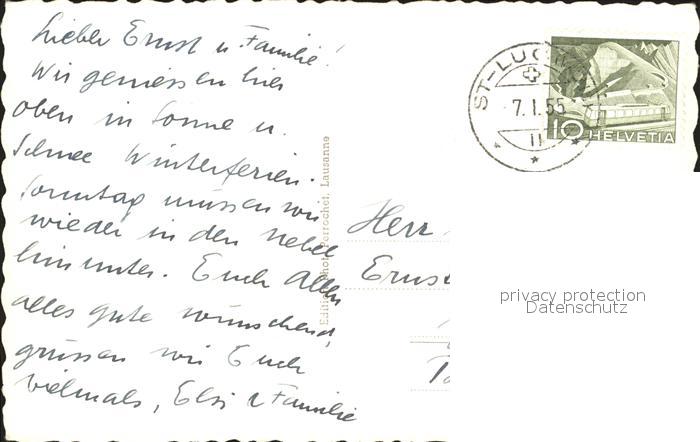 Lieber Ernst u. Familie!
Wir geniessen hier
oben in Sonne u.
Schnee Winterferien.
Sonntag müssen wir
wieder in den Nebel
hinunter. Euch allen
alles gute wünschend,
grüssen wir Euch
vielmals, Elsi & Familie
Edition Photo Perrochet, Lausanne
ST-LUC
7.I.55
10 HELVETIA
Herr
Ernst
privacy protection
Datenschutz